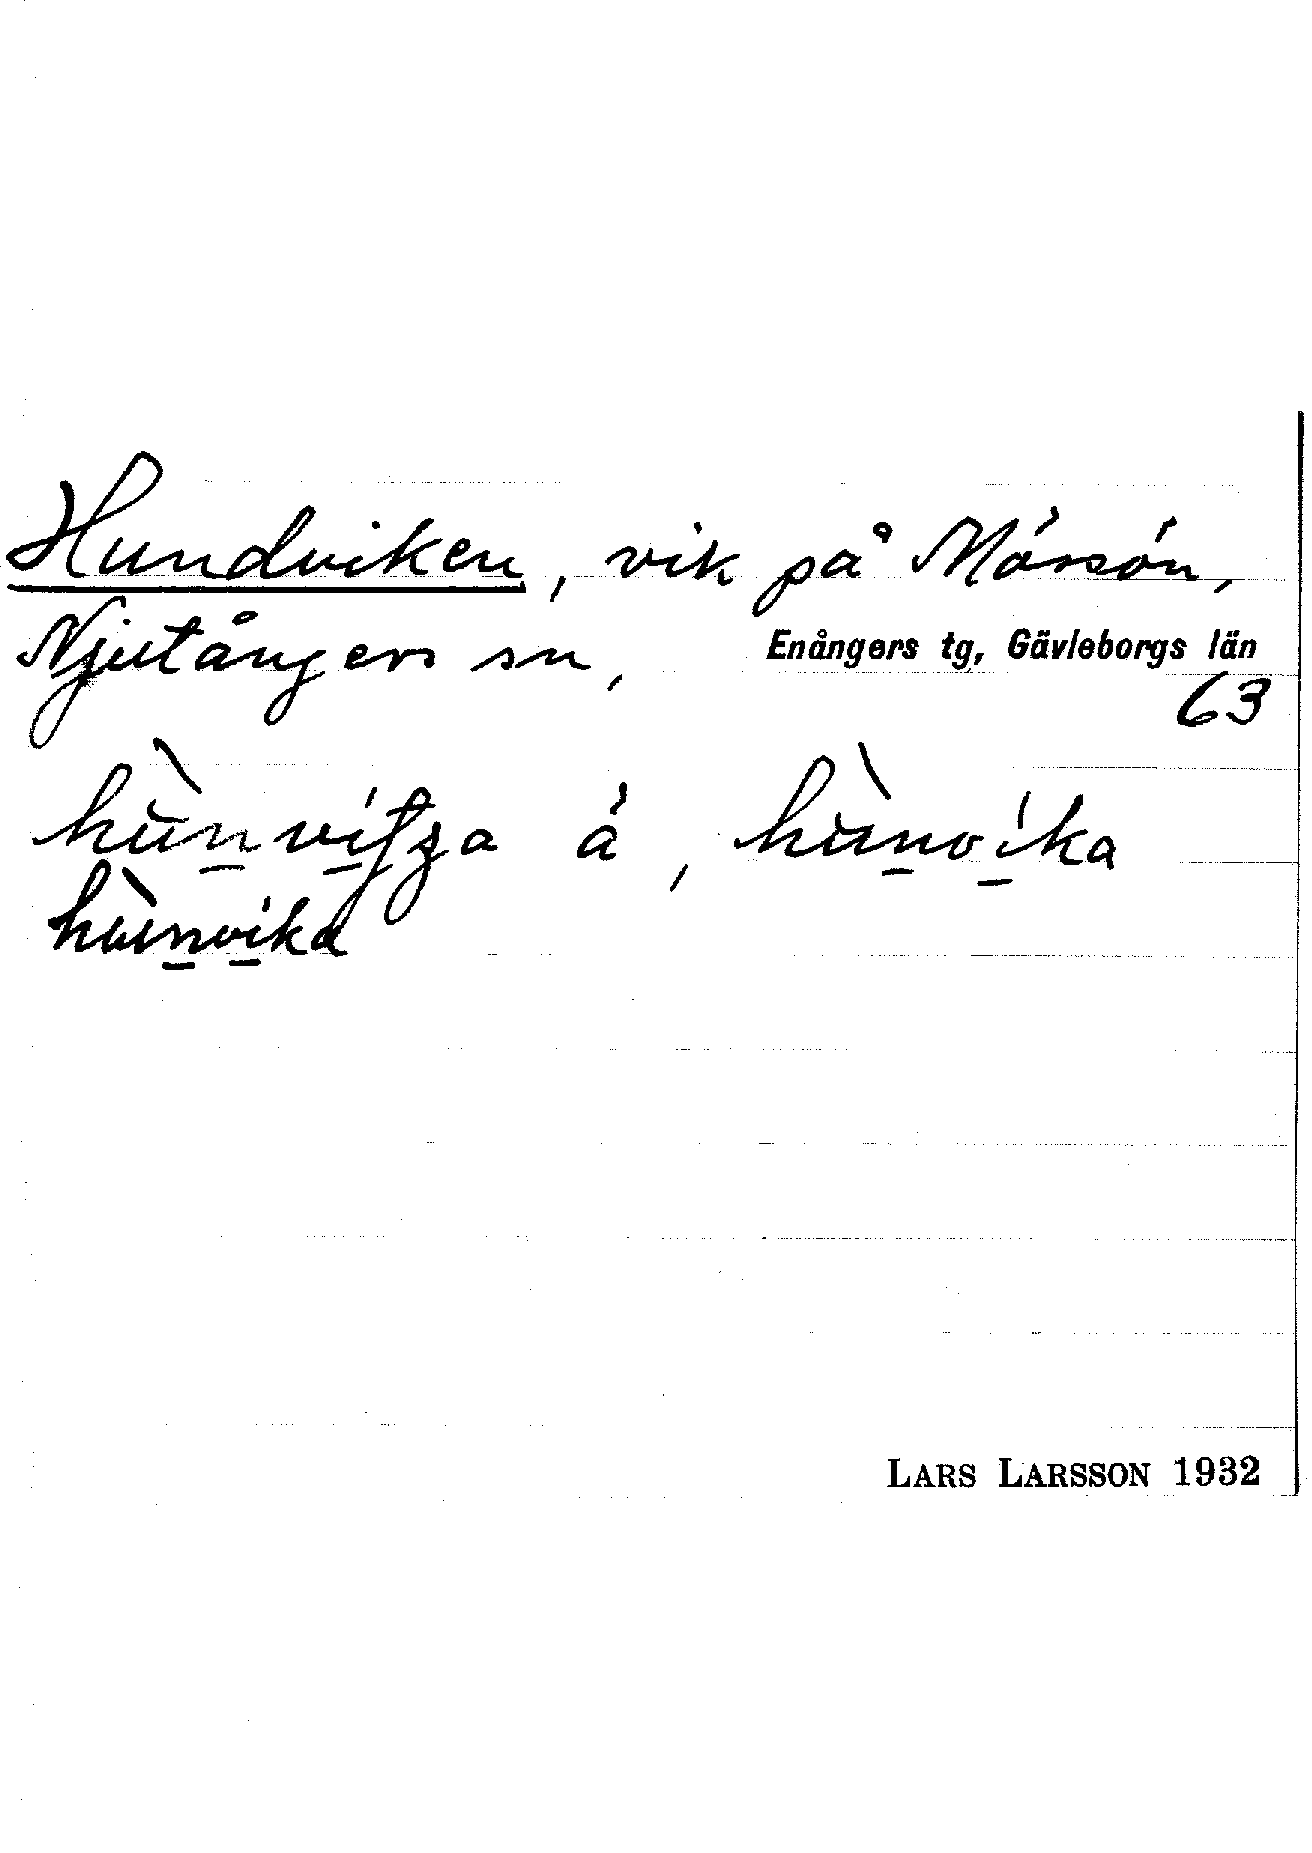 Hundviken, vik på Mössön,
Njutångers sn, Enångers tg, Gävleborgs län
63
hùnvítza å, hùnvíka
hùnvíka
LARS LARSSON 1932